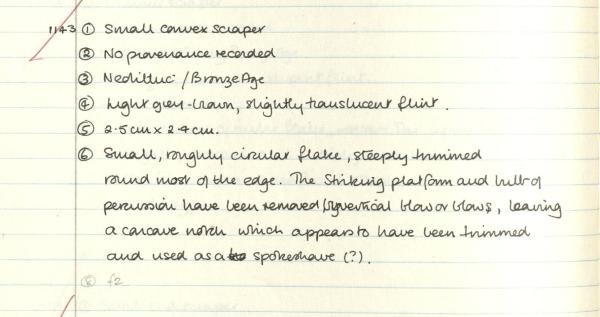 1143 ① Small convex scraper
② No provenance recorded
③ Neolithic / Bronze Age
④ Light grey-brown, slightly translucent flint.
⑤ 2.5cm x 2.4cm.
⑥ Small, roughly circular flake, steeply trimmed
round most of the edge. The striking platform and bulb of
percussion have been removed by vertical blow or blows, leaving
a concave notch which appears to have been trimmed
and used as a spokeshave (?).
⑧ f2